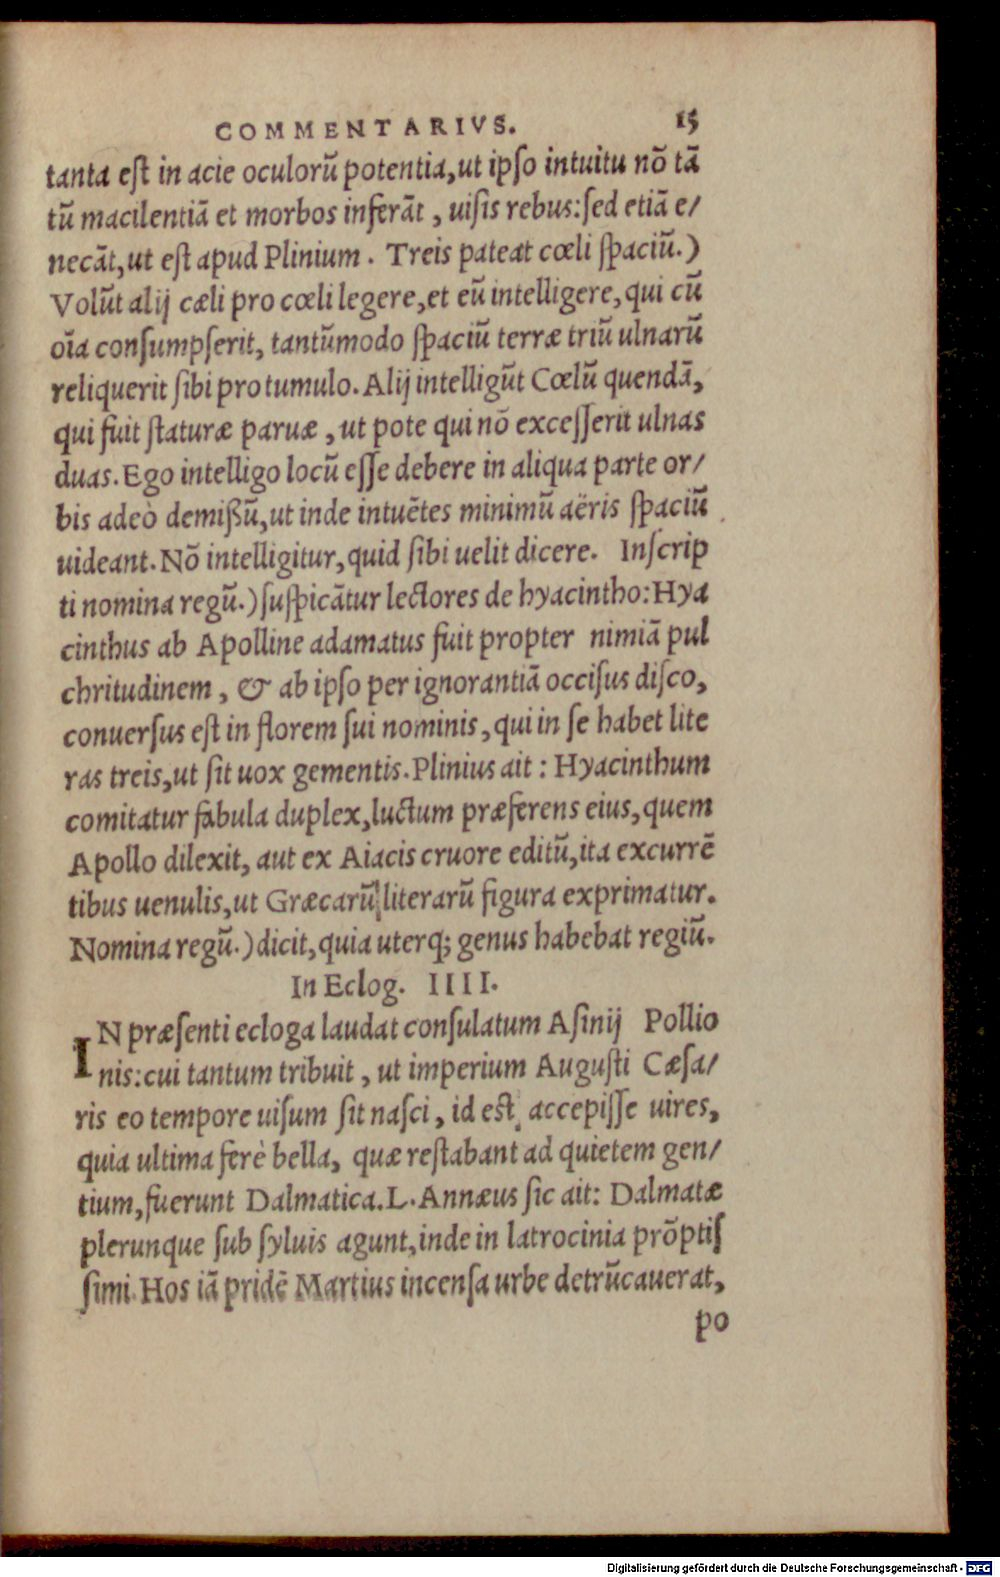 COMMENTARIVS. 15
tanta eſt in acie oculorū potentia,ut ipſo intuitu nō tā
tū macilentiā et morbos inferāt , uiſis rebus:ſed etiā e/
necāt,ut eſt apud Plinium . Treis pateat cœli ſpaciū.)
Volūt alij cæli pro cœli legere,et eū intelligere,qui cū
oīa conſumpſerit, tantūmodo ſpaciū terræ triū ulnarū
reliquerit ſibi pro tumulo. Alij intelligūt Cœlū quendā,
qui fuit ſtaturæ paruæ , ut pote qui nō exceſſerit ulnas
duas. Ego intelligo locū eſſe debere in aliqua parte or/
bis adeò demiſſū,ut inde intuētes minimū aëris ſpaciū
uideant. Nō intelligitur,quid ſibi uelit dicere. Inſcrip
ti nomina regū.)ſuſpicātur lectores de hyacintho: Hya
cinthus ab Apolline adamatus fuit propter nimiā pul
chritudinem , & ab ipſo per ignorantiā occiſus diſco,
conuerſus eſt in florem ſui nominis ,qui in ſe habet lite
ras treis,ut ſit uox gementis. Plinius ait : Hyacinthum
comitatur fabula duplex,luctum præferens eius,quem
Apollo dilexit, aut ex Aiacis cruore editū,ita excurrē
tibus uenulis,ut Græcarū literarū figura exprimatur.
Nomina regū.)dicit,quia uterq; genus habebat regiū.
In Eclog. IIII.
IN præſenti ecloga laudat conſulatum Aſinij Pollio
nis:cui tantum tribuit , ut imperium Auguſti Cæſa/
ris eo tempore uiſum ſit naſci , id eſt, accepiſſe uires,
quia ultima ferè bella, quæ reſtabant ad quietem gen/
tium,fuerunt Dalmatica. L. Annæus ſic ait: Dalmatæ
plerunque ſub ſyluis agunt,inde in latrocinia prōptiſ
ſimi. Hos iā pridē Martius incenſa urbe detrūcauerat,
po
Digitalisierung gefördert durch die Deutsche Forschungsgemeinschaft - DFG